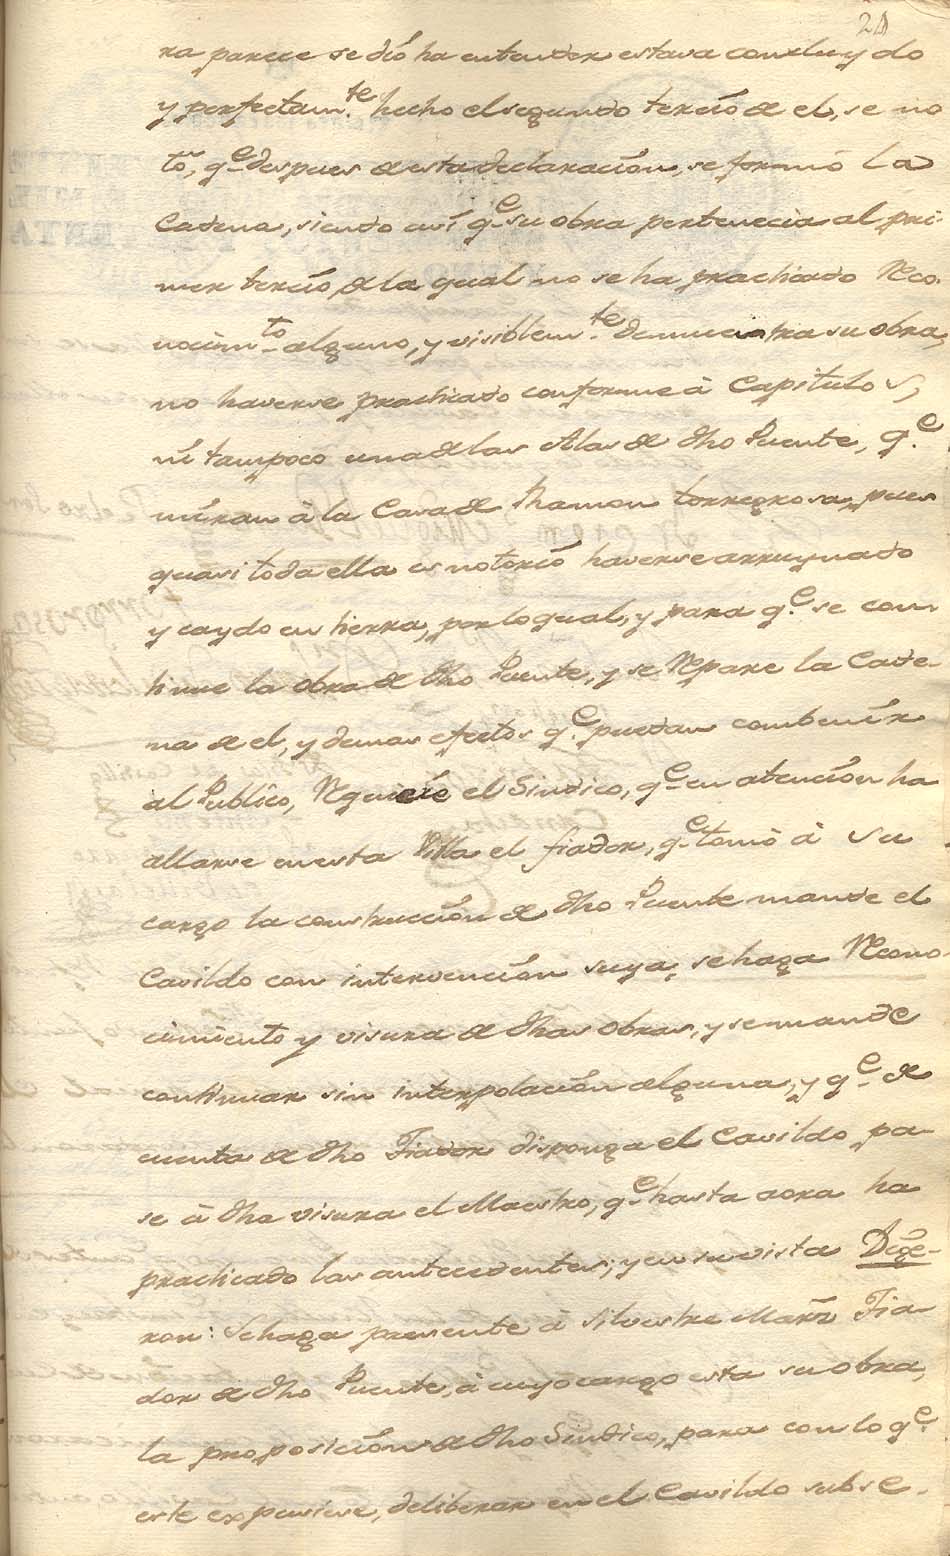 21
ra parece se dió ha entender estava concluydo
y perfectam.te hecho el segundo tercio de el, se no
tó, q.e despues de esta declaracion, se formó la
Cadena, siendo así q.e su obra pertenecia al pri-
mer tercio, de la qual no se ha practicado Reco-
nocim.to alguno, y visiblem.te demuestra su obra,
no haverse practicado conforme à Capitulos,
ni tampoco una de las Alas de dho Puente, q.e
miran à la Casa de Ramon torregrosa, pues
quasi toda ella es notorio haverse arruynado
y caydo en tierra, por lo qual, y para q.e se con
tinue la obra de dho Puente, y se Repare la Cade-
na de el, y demas efectos q.e puedan combenir
al Publico, Requirió el Sindico, q.e en atencion ha
allarse en esta Villa el fiador, q.e tomó à su
cargo la construccion de dho Puente mande el
Cavildo con intervencion suya, se haga Recono-
cimiento y visura de dhas obras, y se mande
continuar sin interpolacion alguna, y q.e de
cuenta de dho Fiador disponga el Cavildo pa-
se à dha visura el Maestro, q.e hasta aora ha
practicado las antecedentes; y en su vista Dige-
ron: Se haga presente à Silvestre Marz Fia-
dor de dho Puente, à cuyo cargo esta su obra,
la proposicion de dho Sindico, para con lo q.e
este expusiese, deliberar en el Cavildo subse-